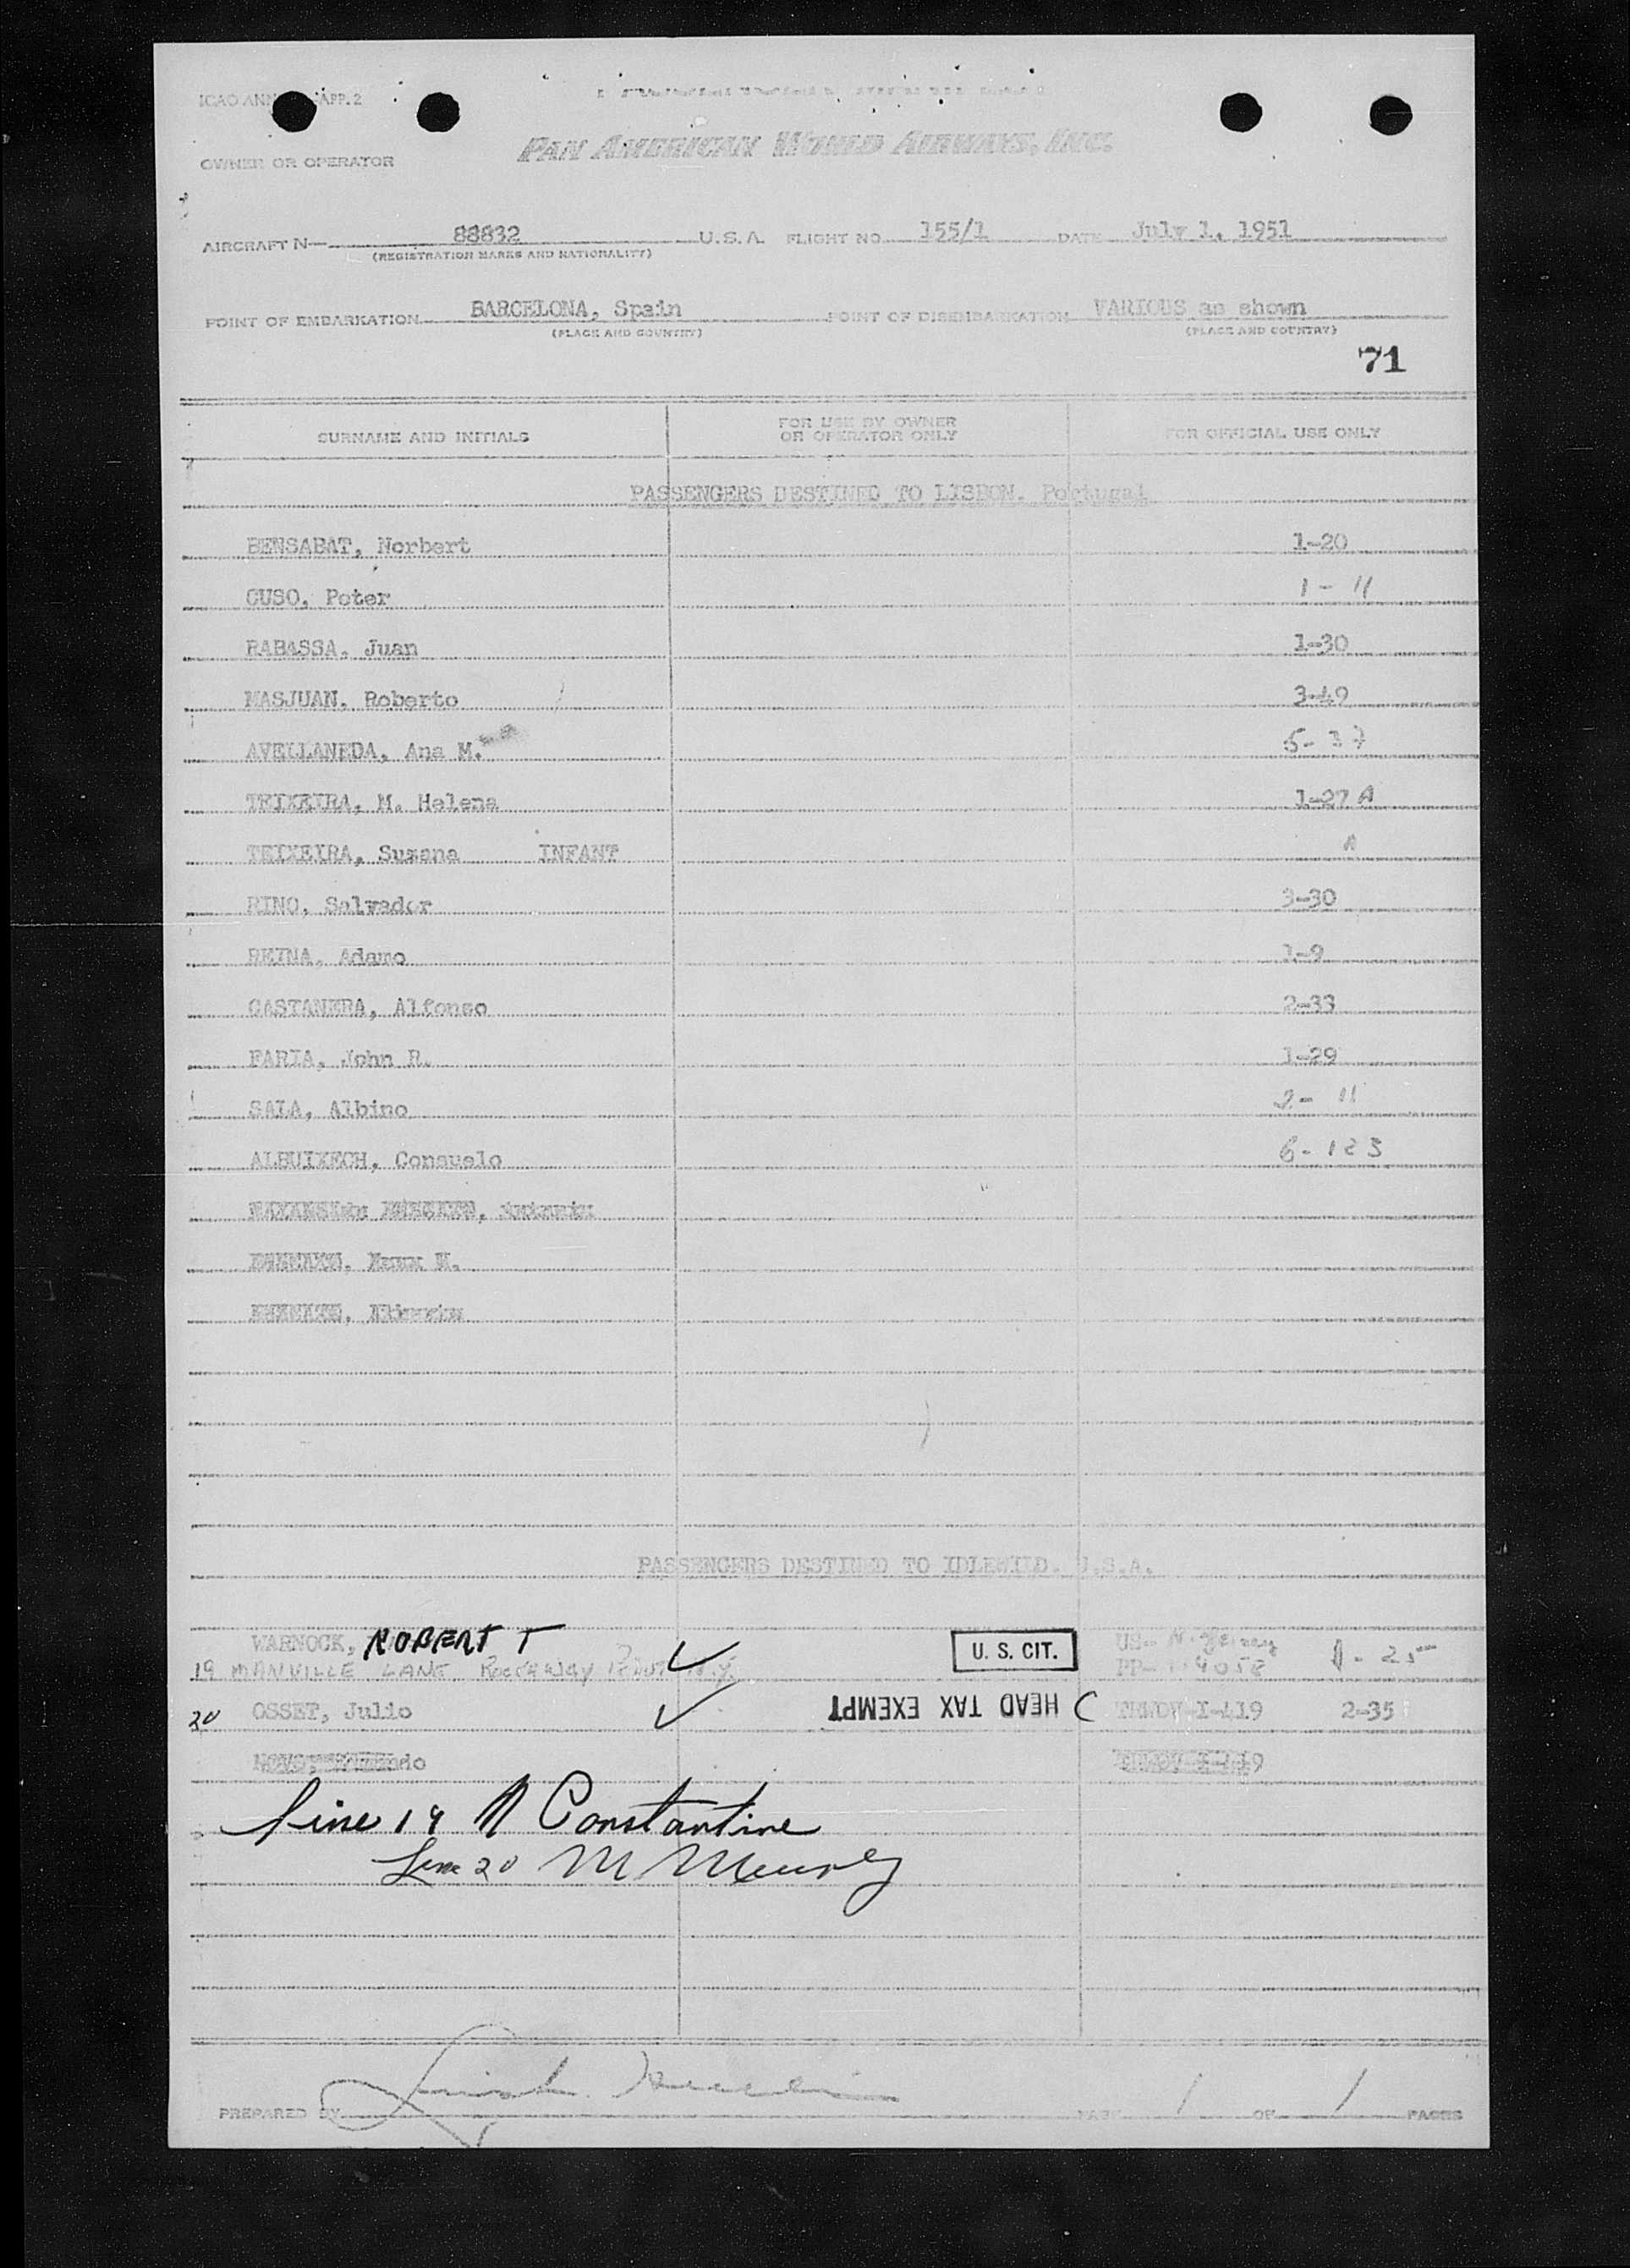 ICAO ANN APP. 2
OWNER OR OPERATOR PAN AMERICAN WORLD AIRWAYS, INC.
AIRCRAFT N— 88832 U.S.A. FLIGHT NO. 155/1 DATE July 1, 1951
(REGISTRATION MARKS AND NATIONALITY)
POINT OF EMBARKATION BARCELONA, Spain POINT OF DISEMBARKATION VARIOUS as shown
(PLACE AND COUNTRY) (PLACE AND COUNTRY)
71
SURNAME AND INITIALS FOR USE BY OWNER OR OPERATOR ONLY FOR OFFICIAL USE ONLY
PASSENGERS DESTINED TO LISBON. Portugal
BENSABAT, Norbert 1-20
CUSO, Peter 1-11
RABASSA, Juan 1-30
MASJUAN, Roberto 3-49
AVELLANEDA, Ana M. 5-37
TEIXEIRA, M. Helena 1-27 A
TEIXEIRA, Susana INFANT A
RINO, Salvador 3-30
REINA, Adamo 1-9
CASTANERA, Alfonso 2-33
FARIA, John R. 1-29
SALA, Albino 2-11
ALBUIXECH, Consuelo 6-123
PASSENGERS DESTINED TO IDLEWILD. U.S.A.
WARNOCK, ROBERT T ✓ U. S. CIT. US- N. Jersey
19 MANVILLE LANE ROCKAWAY POINT N.Y. PP- 4058 1-25
20 OSSET, Julio ✓ HEAD TAX EXEMPT C TRWOV I-419 2-35
TRWOV I-419
Line 19 N Constantine
Line 20 M
PREPARED BY PAGE 1 OF 1 PAGES